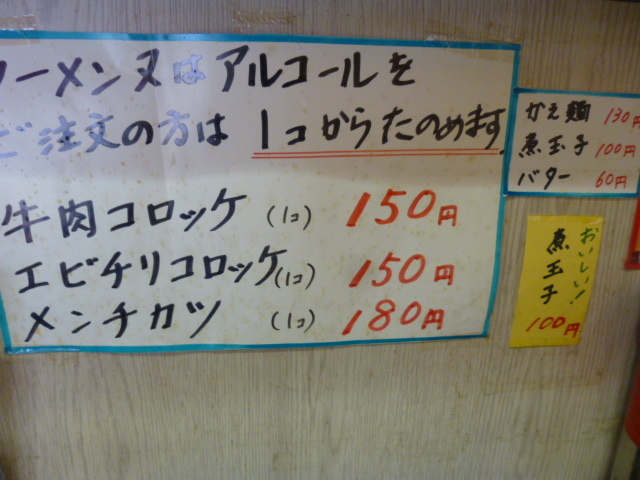 ーメン又はアルコールを
ご注文の方は 1コからたのめます
牛肉コロッケ (1コ) 150円
エビチリコロッケ(1コ) 150円
メンチカツ (1コ) 180円
かえ麺 130円
煮玉子 100円
バター 60円
おいしい!
煮玉子
100円